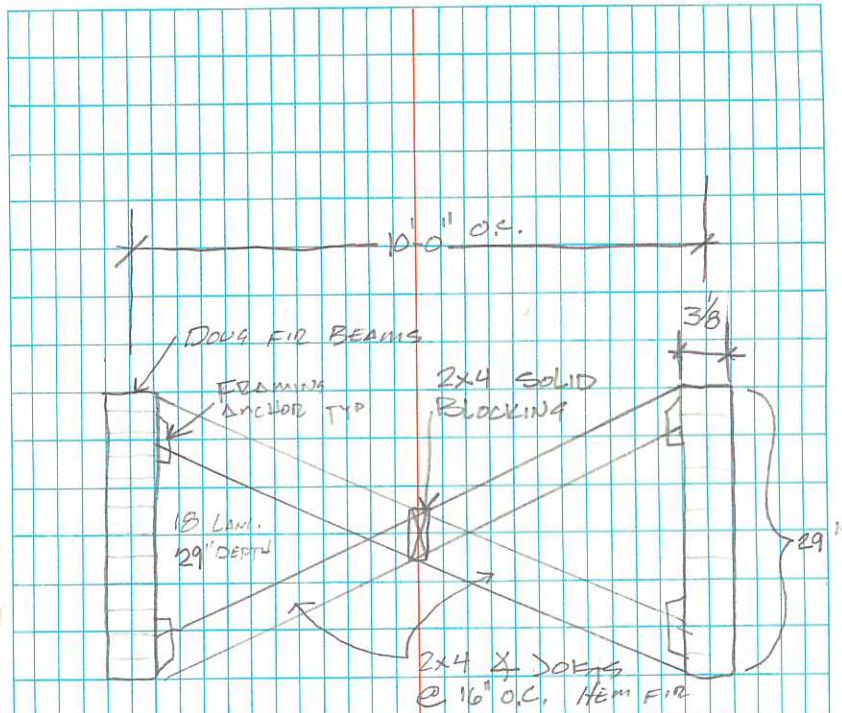 10'-0" O.C.
3 1/8
DOUG FIR BEAMS
FRAMING
ANCHOR TYP
2x4 SOLID
BLOCKING
18 LAM.
29" DEPTH
29"
2x4
@ 16" O.C. HEM FIR